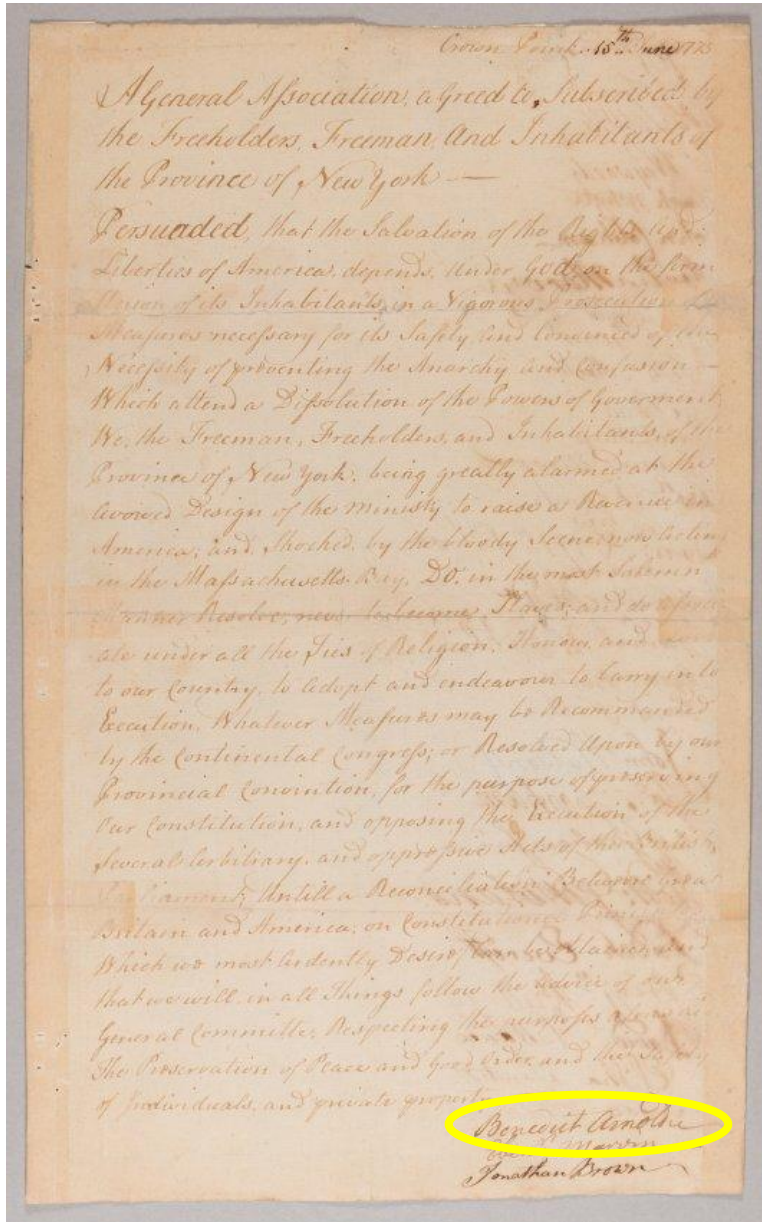 Crown Point 15th June 1775
A General Association, agreed to, Subscribed by
the Freeholders, Freeman, And Inhabitants of
the Province of New York —
Persuaded, that the Salvation of the Rights and
Liberties of America, depends, under God, on the form
Union of its Inhabitants, in a Vigorous Prosecution
Measures necessary for its Safety, and Convinced of the
Necessity of preventing the Anarchy and Confusion —
Which attend a Dissolution of the Powers of Goverment
We, the Freeman, Freeholders, and Inhabitants, of the
Province of New York, being greatly alarmed at the
avowed Design of the Ministy to raise a Revenue in
America; and, Shocked, by the bloody Scene now
in the Massachusetts Bay, DO, in the most Solemn
Manner Resolve, never to become Slaves; and do
ate under all the Ties of Religion, Honour, and
to our Country, to adopt and endeavour to Carry into
Execution, Whatever Measures may be Recommended
by the Continental Congress; or Resolved Upon by our
Provincial Convintion, for the purpose of preserving
Our Constitution, and opposing the Execution of the
Several Arbitiary, and oppressive Acts of the British
Untill a Reconciliation Between
Britain and America, on Constitutional
Which we most Ardently Desire, Can be obtained and
that we will, in all Things follow the advice of our
General Committe, Respecting the purposes
The Preservation of Peace and Good Order, and the Safety
of Individuals, and private property
Benedict Arnold
Marvin
Jonathan Brown